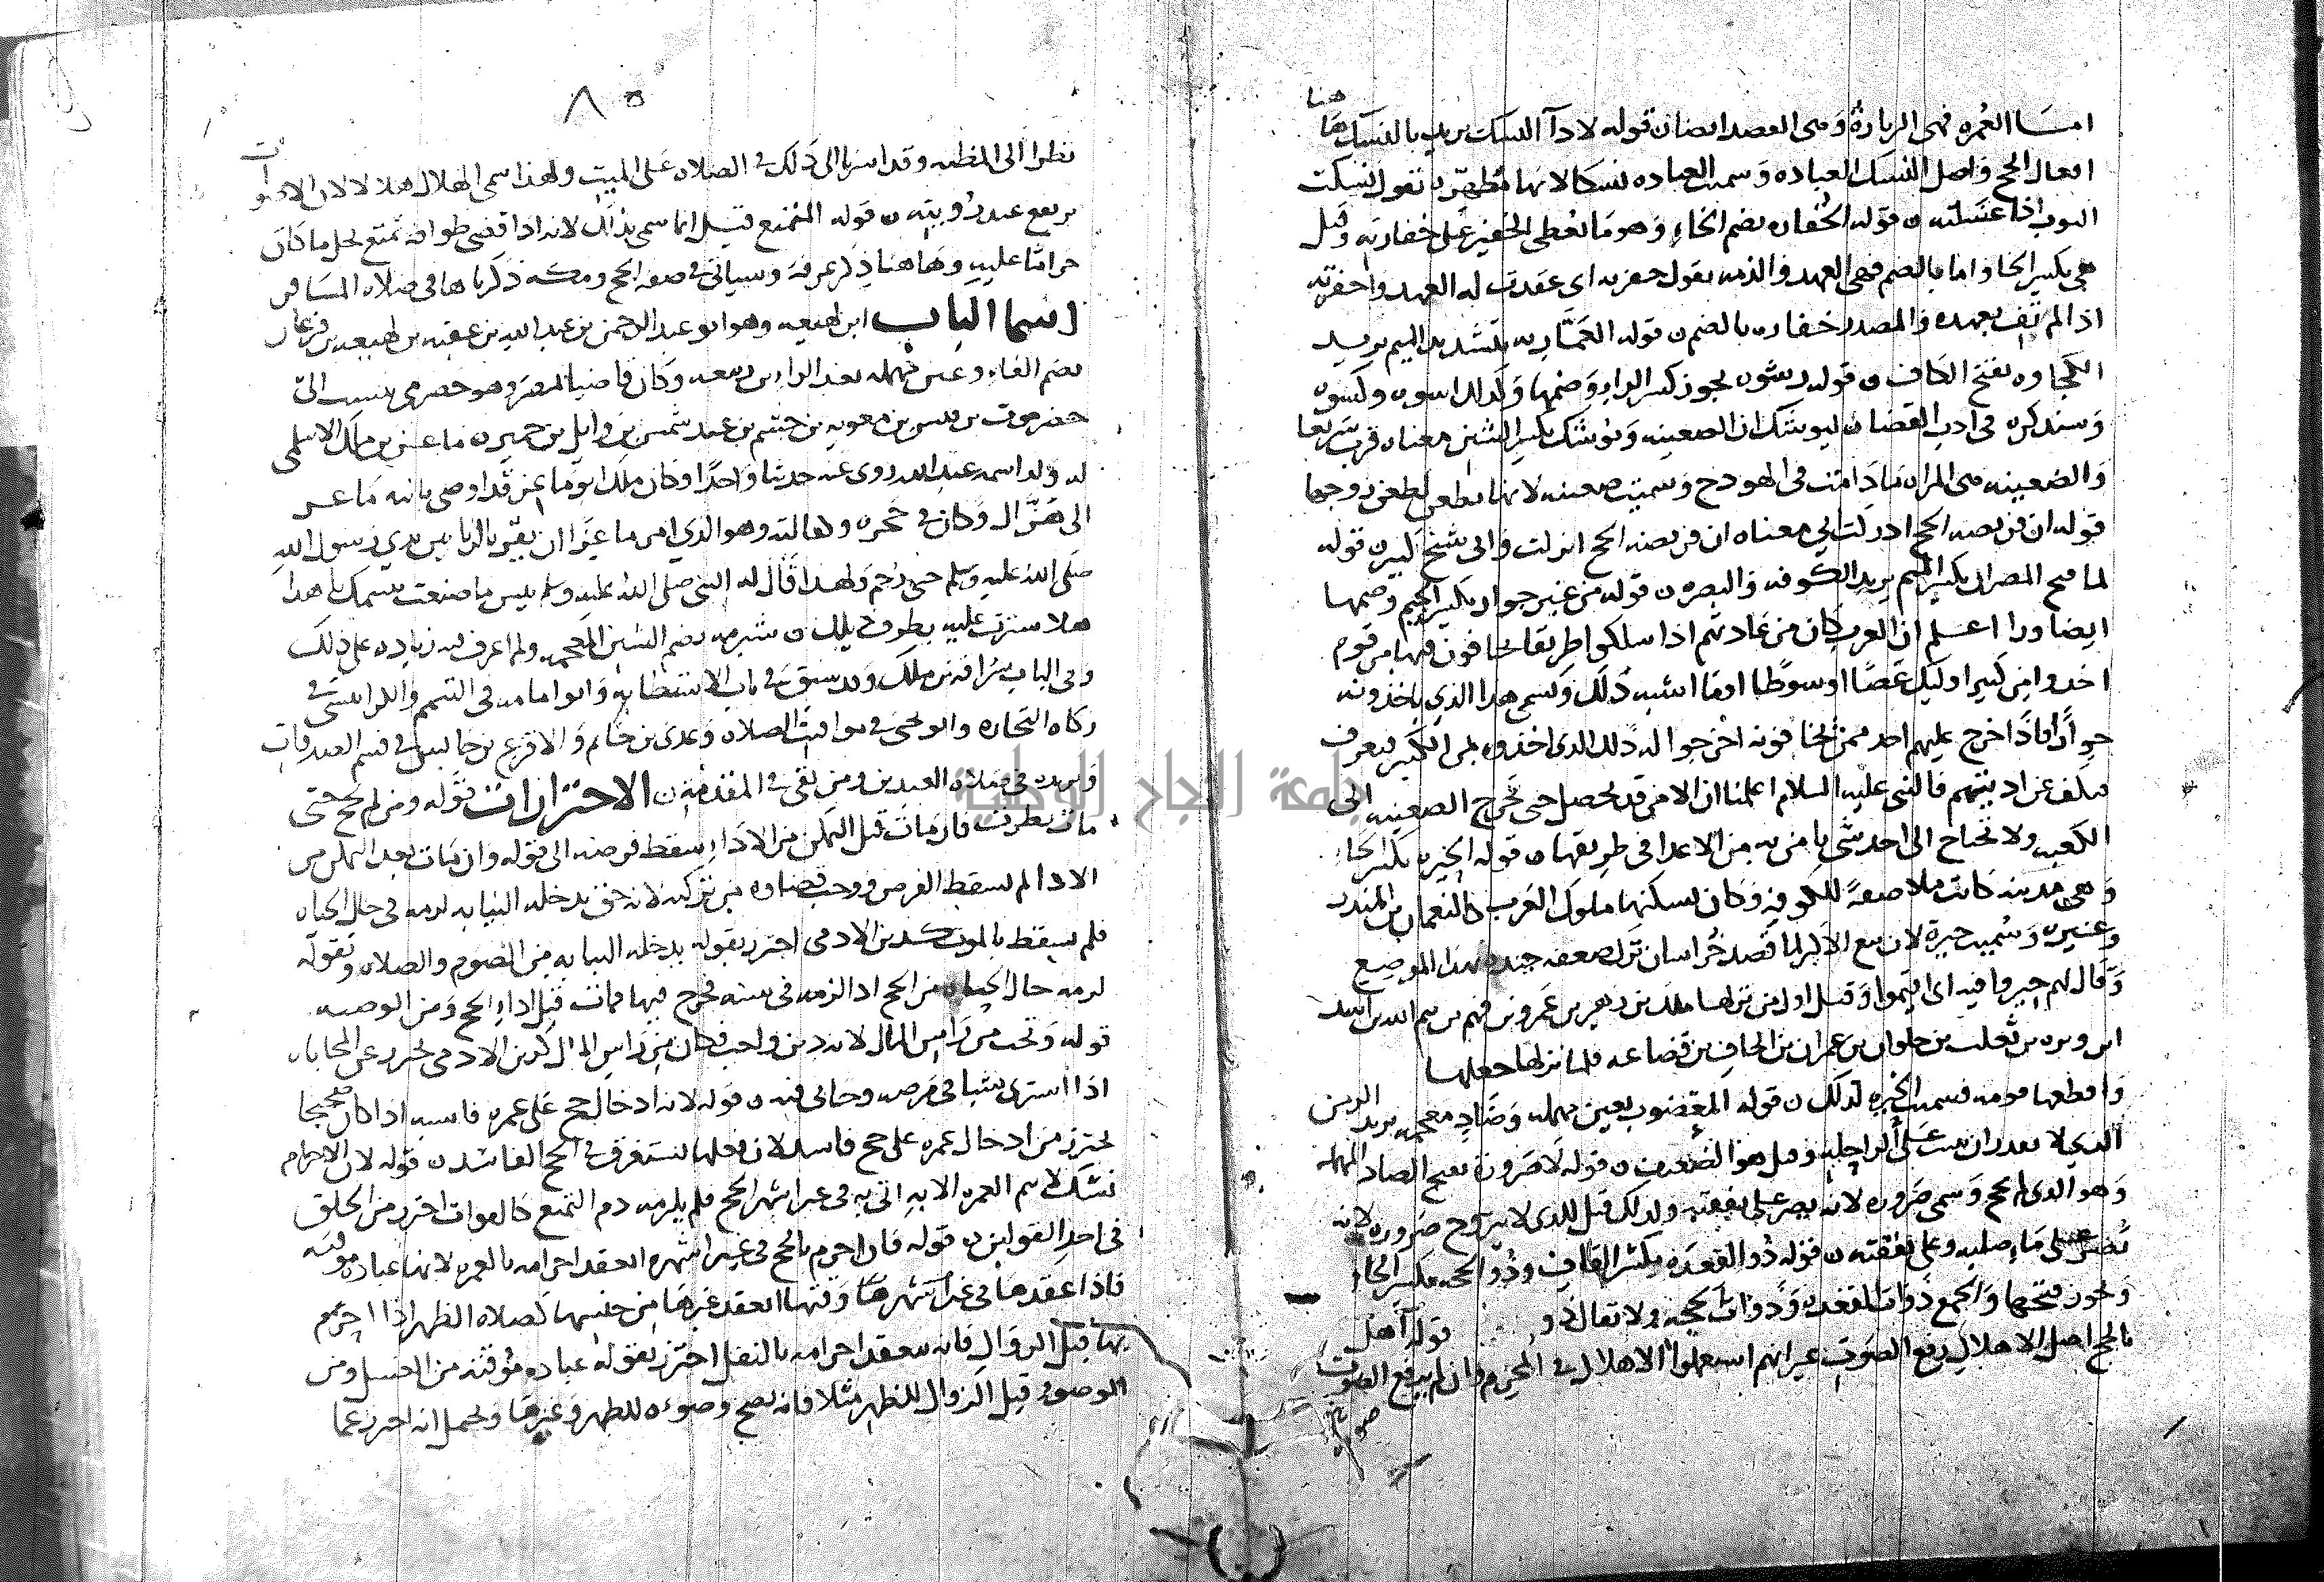 هنا
اما العمره فهى الزيارة وهى القصد ايضا ن قوله لاداء النسك يريد بالنسك ها
افعال الحج واصل النسك العباده وسميت العباده نسكا لانها مطهره تقول نسكت
الثوب اذا غسلته ن قوله الخفاره بضم الخاء وهو ما يعطى الخفير على خفارته وقيل
هى بكسر الخا واما بالضم فهى العهد والذمه يقول خفرته اى عقدت له العهد واخفرته
اذا لم تف بعهده والمصدر خفاره بالضم ن قوله العماريه بتشديد الميم يريد
الكجاوه بفتح الكاف ن قوله يجوز كسر الراء وضمها وكذلك وكسوه
وسنذكره فى ادب القضا ن ليوشكن ان الضعينه ويوشك بكسر الشين معناه قرب سريعا
والضعينه هى المراه مادامت فى الهودج وسميت ضعينه لانها تظعن لظعن زوجها
قوله ان فريضه الحج ادركت ابى معناه ان فريضه الحج انزلت وابى شيخ كبير ن قوله
لما فتح المصران بكسر الميم يريد الكوفه والبصره ن قوله من غير جوار بكسر الجيم وضمها
ايضا ورا اعلم ان العرب كان من عادتهم اذا سلكوا طريقا يخافون فيها من قوم
اخذوا من كبير اوليك عصا او سوطا او ما اشبه ذلك ويسمى هذا الذى ياخذونه
جوارا فاذا خرج عليهم احد ممن يخافونه اخرجوا له ذلك الذى اخذوه من الكبير فيعرف
فيكف عن اذيتهم فالنبى عليه السلام اعلمنا ان الامن قد يحصل حتى تخرج الضعينه الى
الكعبه ولا تحتاج الى احد شى يامن به من الاعدا فى طريقها ن قوله الحيره بكسر الحا
وهى مدينه كانت ملاصقة للكوفه وكان يسكنها ملوك العرب كالنعمان بن المنذر
وغيره وسميت حيرة لان تبع الاكبر لما قصد خراسان ترك ضعفه جنده بهذا الموضع
وقال لهم حيروا فيه اى اقيموا وقيل اول من نزلها ملك بن زهير بن عمرو بن فهم بن تيم الله بن اسد
ابن وبره بن ثعلب بن حلوان بن عمران بن الحاف بن قضاعه فلما نزلها جعلها
واقطعها قومه فسميت الحيره لذلك ن قوله المعضوب بعين مهمله وضاد معجمه يريد الزمن
الذى لا يقدر ان يثبت على الراحله وقيل هو الضعيف ن قوله لا صروره بفتح الصاد المهمله
وهو الذى لم يحج وسمى صروره لانه يصر على نفقته ولذلك قيل للذى لا يتزوج صروره لانه
يصر على ماء صلبه وعلى نفقته ن قوله ذو القعده بكسر القاف وذو الحجه بكسر الحاء
ويجوز فتحهما والجمع ذوات القعده وذوات الحجه ولا تقال ذوو قوله اهل
بالحج اصل الاهلال رفع الصوت غير انهم استعملوا الاهلال فى المحرم وان لم يرفع الصوت
نظرا الى المظنه وقد اشرنا الى ذلك فى الصلاه على الميت ولهذا سمى الهلال هلالا لان الاصوات
ترتفع عند رؤيته ن قوله المتمتع قيل انما سمى بذلك لانه اذا قضى طوافه تمتع بحل ما كان
حراما عليه وهاهنا ذكر عرفه وسياتى فى صفه الحج ومكه ذكرناها فى صلاه المسافر
اسما الباب ابن لهيعه وهو ابو عبد الرحمن بن عبد الله بن عقبه بن لهيعه بن فرعان
بضم الفاء وعين مهمله بعد الراء بن ربيعه وكان قاضيا لمصر وهو حضرمى ينسب الى
حضرموت بن قيس بن معويه بن جشم بن عبد شمس بن وايل بن حمير ن ماعز بن ملك الاسلمى
له ولد اسمه عبد الله روى عنه حديثا واحدا وكان ملك ابو ماعز قد اوصى بابنه ماعز
الى هزال وكان فى حجره وكفالته وهو الذى امر ماعزا ان يقر بالزنا بين يدى رسول الله
صلى الله عليه وسلم حتى رجم ولهذا قال له النبى صلى الله عليه وسلم بيس ما صنعت بيتيمك يا هذا
هلا سترت عليه بطرف ثوبك ن شبرمه بضم الشين المعجمه ولم اعرف له زياده على ذلك
وفى الباب سراقه بن ملك وقد سبق فى باب الاستطابه وابو امامه فى التيمم وانس فى
زكاه التجاره وابو يحيى فى مواقيت الصلاه وعدى بن حاتم والاقرع بن حابس فى قسم الصدقات
وبريده فى صلاه العيدين ومن بقى فى المقدمه ن الاحترازات قوله ومن لم يحج حتى
مات نظرت فان مات قبل التمكن من الاداء سقط فرضه الى قوله وان مات بعد التمكن من
الادا لم يسقط الفرض ووجب قضاوه من تركته لانه حق تدخله النيابه لزمه فى حال الحياه
فلم يسقط بالموت كدين الادمى احترز بقوله تدخله النيابه من الصوم والصلاه وبقوله
لزمه حال الحياه من الحج اذا لزمه فى سنه فخرج فيها فمات قبل اداء الحج ومن الوصيه
قوله وتجب من راس المال لانه دين واجب فكان من راس المال كدين الادمى يحرز عن المحاباه
اذا اشترى شيا فى مرضه وحابى فيه ن قوله لانه ادخال حج على عمره فاشبه اذا كان صحيحا
يحترز من ادخال عمره على حج فاسد لان افعالها تستغرق فى الحج الفاسد ن قوله لان الاحرام
نسك لا يتم العمره الا به اتى به فى غير اشهر الحج فلم يلزمه دم التمتع كالطواف احترز من الحلق
فى احد القولين ن قوله فان احرم بالحج فى غير اشهره انعقد احرامه بالعمره لانها عباده موقته
فاذا عقدها فى غير اشهرها وقتها انعقد غيرها من جنسها كصلاه الظهر اذا احرم
بها قبل الزوال فانه ينعقد احرامه بالنفل احترز بقوله عباده موقته من الغسل ومن
الوضوء قبل الزوال للظهر مثلا فانه يصح وضوءه للظهر وغيرها ويحتمل انه احترز عما
جامعة النجاح الوطنية